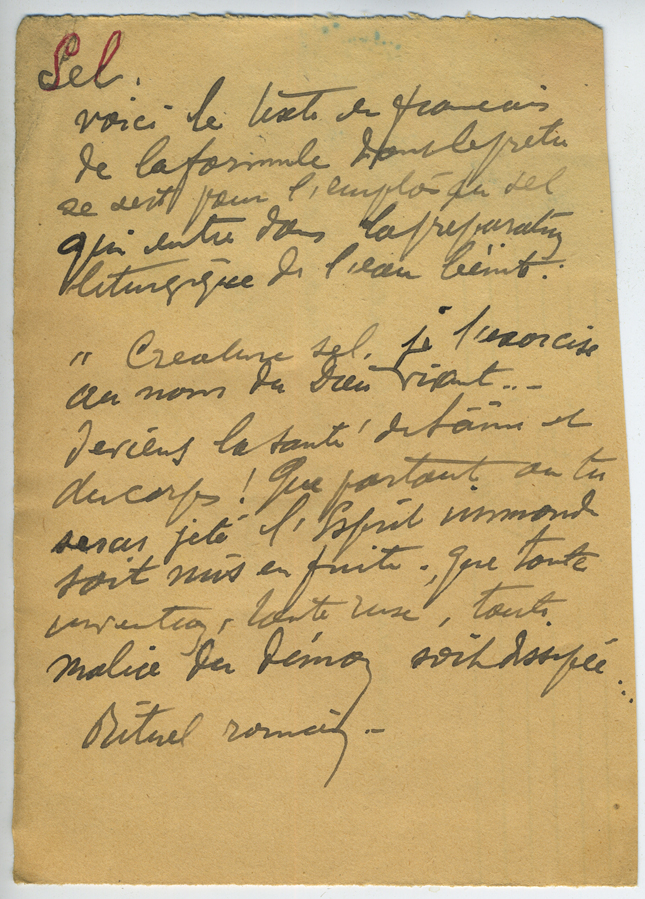 Sel.
voici le texte en français
de la formule dont le prêtre
se sert pour l'emploi du sel
qui entre dans la préparation
liturgique de l'eau bénit.
" Creature sel, je t'exorcise
au nom du Dieu vivant...-
deviens la santé de l'âme et
du corps ! Que partout où tu
seras jeté l'Esprit immonde
soit mis en fuite. Que toute
invention, toute ruse, toute
malice du démon soit dissipée...
Rituel romain -